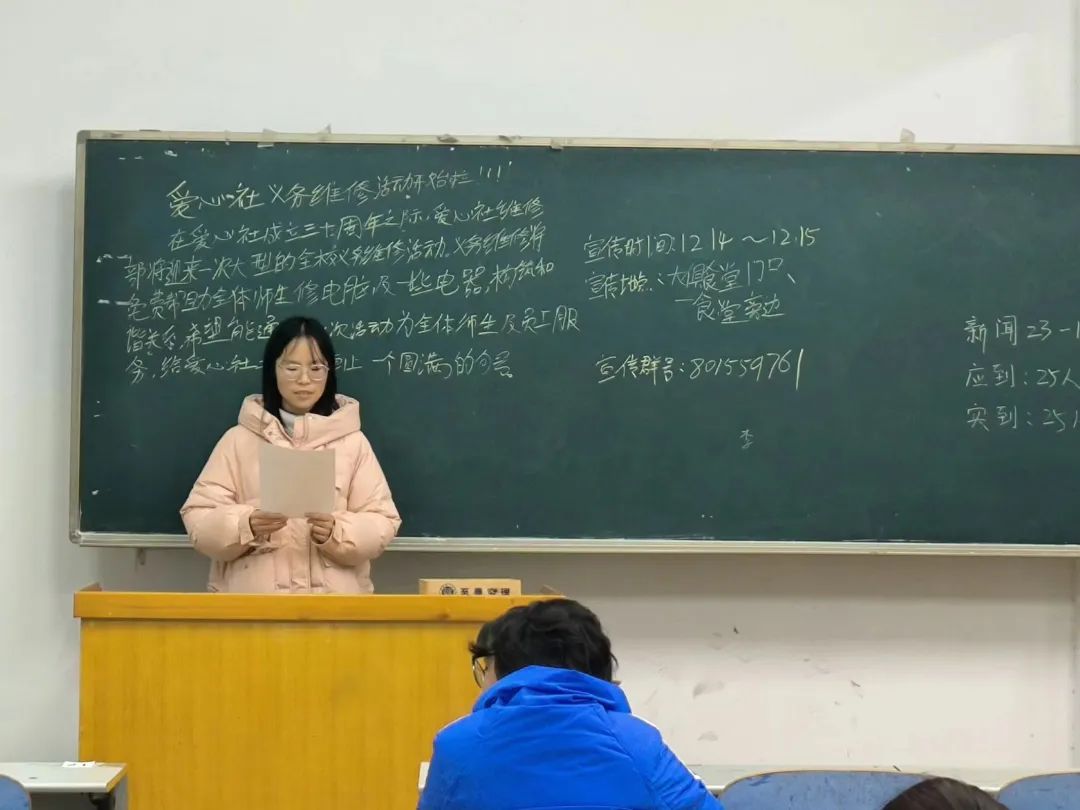 爱心社义务维修活动开始啦!!!
在爱心社成立三十周年之际,爱心社维修
部将迎来一次大型的全校义务维修活动。义务维修将
免费帮助全体师生修电脑及一些电器,构筑和
谐关系,希望能通 次活动为全体师生及员工服
务,给爱心社 上一个圆满的句号
宣传时间:12.14~12.15
宣传地点:大殿堂门口、
一食堂旁边
宣传群号:801559761
新闻23-1
应到:25人
实到:25人
李